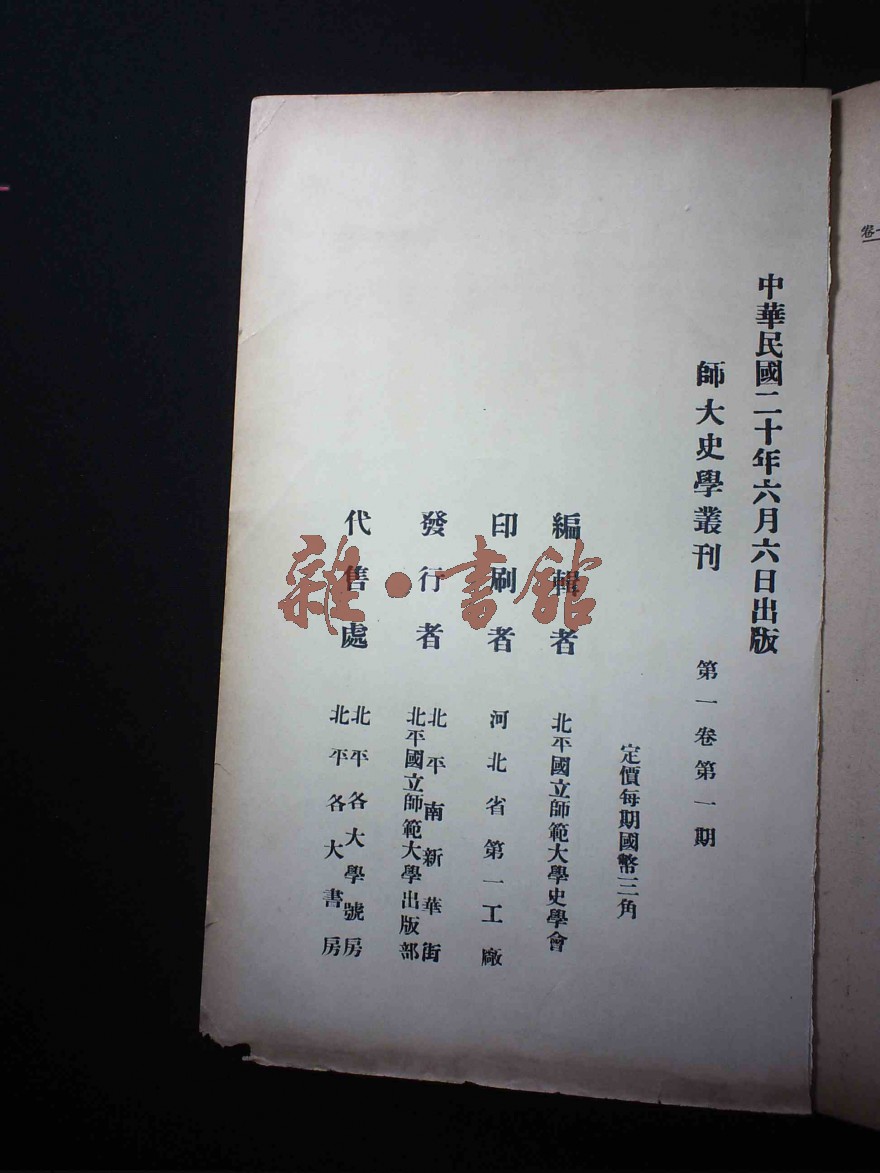 中華民國二十年六月六日出版
師大史學叢刊 第一卷第一期
定價每期國幣三角
編輯者 北平國立師範大學史學會
印刷者 河北省第一工廠
發行者 北平南新華街
北平國立師範大學出版部
代售處 北平各大學號房
北平各大書房
雜·書館